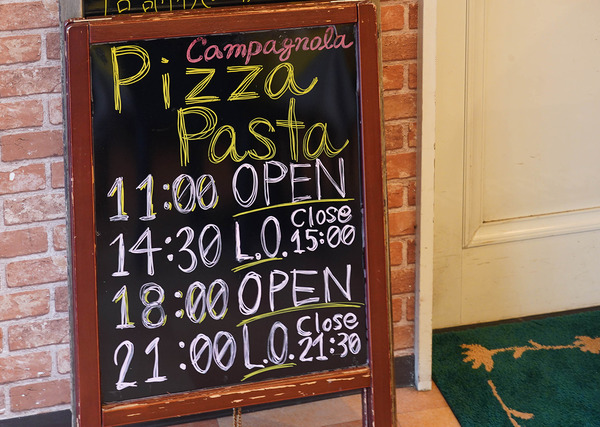 Campagnola
Pizza
Pasta
11:00 OPEN
14:30 L.O. Close 15:00
18:00 OPEN
21:00 L.O. Close 21:30